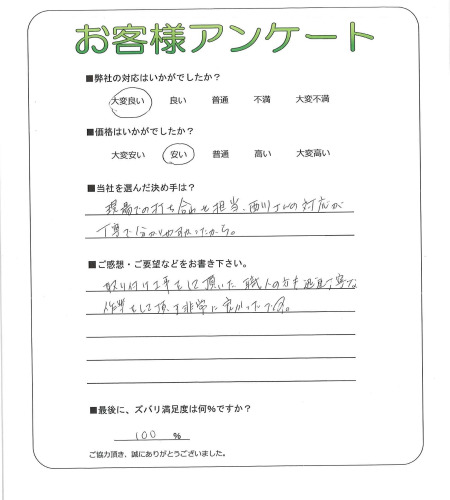 お客様アンケート
■弊社の対応はいかがでしたか？
大変良い 良い 普通 不満 大変不満
■価格はいかがでしたか？
大変安い 安い 普通 高い 大変高い
■当社を選んだ決め手は？
現場での打ち合わせ担当、西川さんの対応が
丁寧で分かりやすかったから。
■ご感想・ご要望などをお書き下さい。
取り付け工事をして頂いた職人の方も 丁寧な
作業をして頂き非常に良かったです。
■最後に、ズバリ満足度は何%ですか？
100 %
ご協力頂き、誠にありがとうございました。